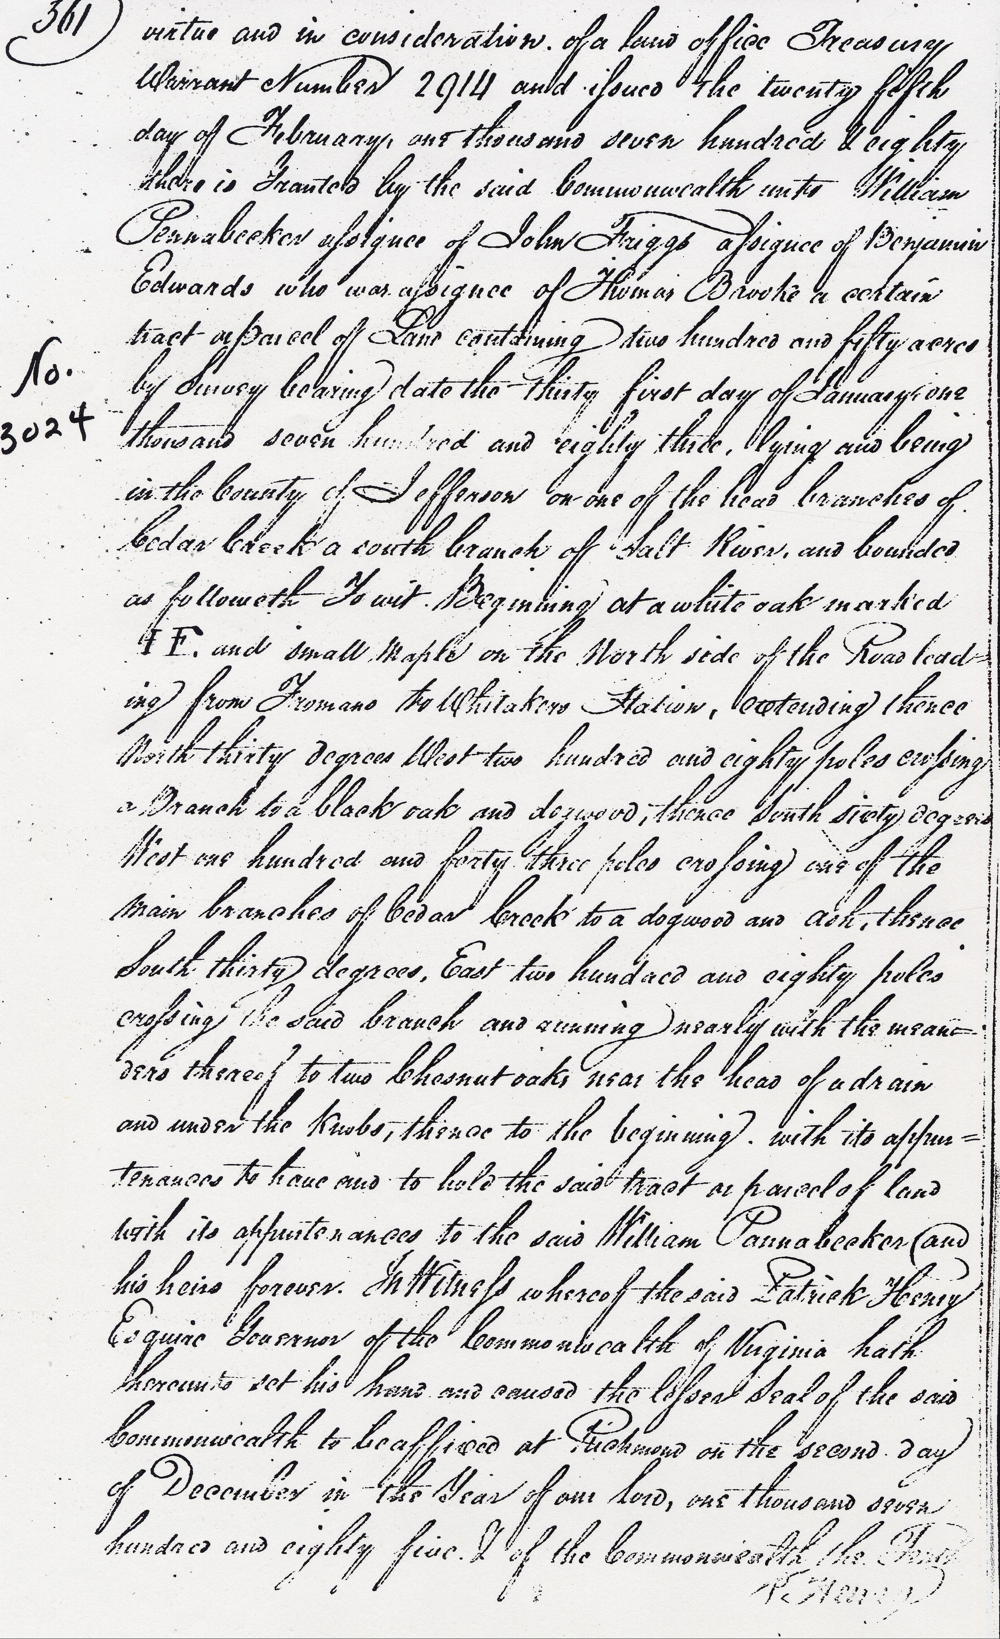 361
virtue and in consideration. of a land office Treasury
Warrant Number 2914 and issued the twenty fifth
day of February, one thousand seven hundred & eighty
there is Granted by the said Commonwealth unto William
Pennabecker assignee of John Friggs assignee of Benjamin
Edwards who was assignee of Thomas Brooke a certain
tract or parcel of Land containing two hundred and fifty acres
No. 3024
by Survey bearing date the Thirty first day of January one
thousand seven hundred and eighty three, lying and being
in the County of Jefferson on one of the head branches of
Cedar Creek a south branch of Salt River, and bounded
as followeth To wit. Beginning at a white oak marked
IF. and small Maple on the North side of the Road lead=
ing from Fromans to Whitakers Station, extending thence
North thirty degrees West two hundred and eighty poles crossing
a Branch to a black oak and dogwood, thence South sixty degrees
West one hundred and forty three poles crossing one of the
main branches of Cedar Creek to a dogwood and ash, thence
South thirty degrees, East two hundred and eighty poles
crossing the said branch and running nearly with the mean=
ders thereof to two Chesnut oaks near the head of a drain
and under the Knobs, thence to the beginning. with its appur=
tenances to have and to hold the said tract or parcel of land
with its appurtenances to the said William Pannabecker and
his heirs forever. In Witness whereof the said Patrick Henry
Esquire Governor of the Commonwealth of Virginia hath
hereunto set his hand and caused the lesser Seal of the said
Commonwealth to be affixed at Richmond on the second day
of December in the Year of our lord, one thousand seven
hundred and eighty five. & of the Commonwealth the Tenth
P. Henry